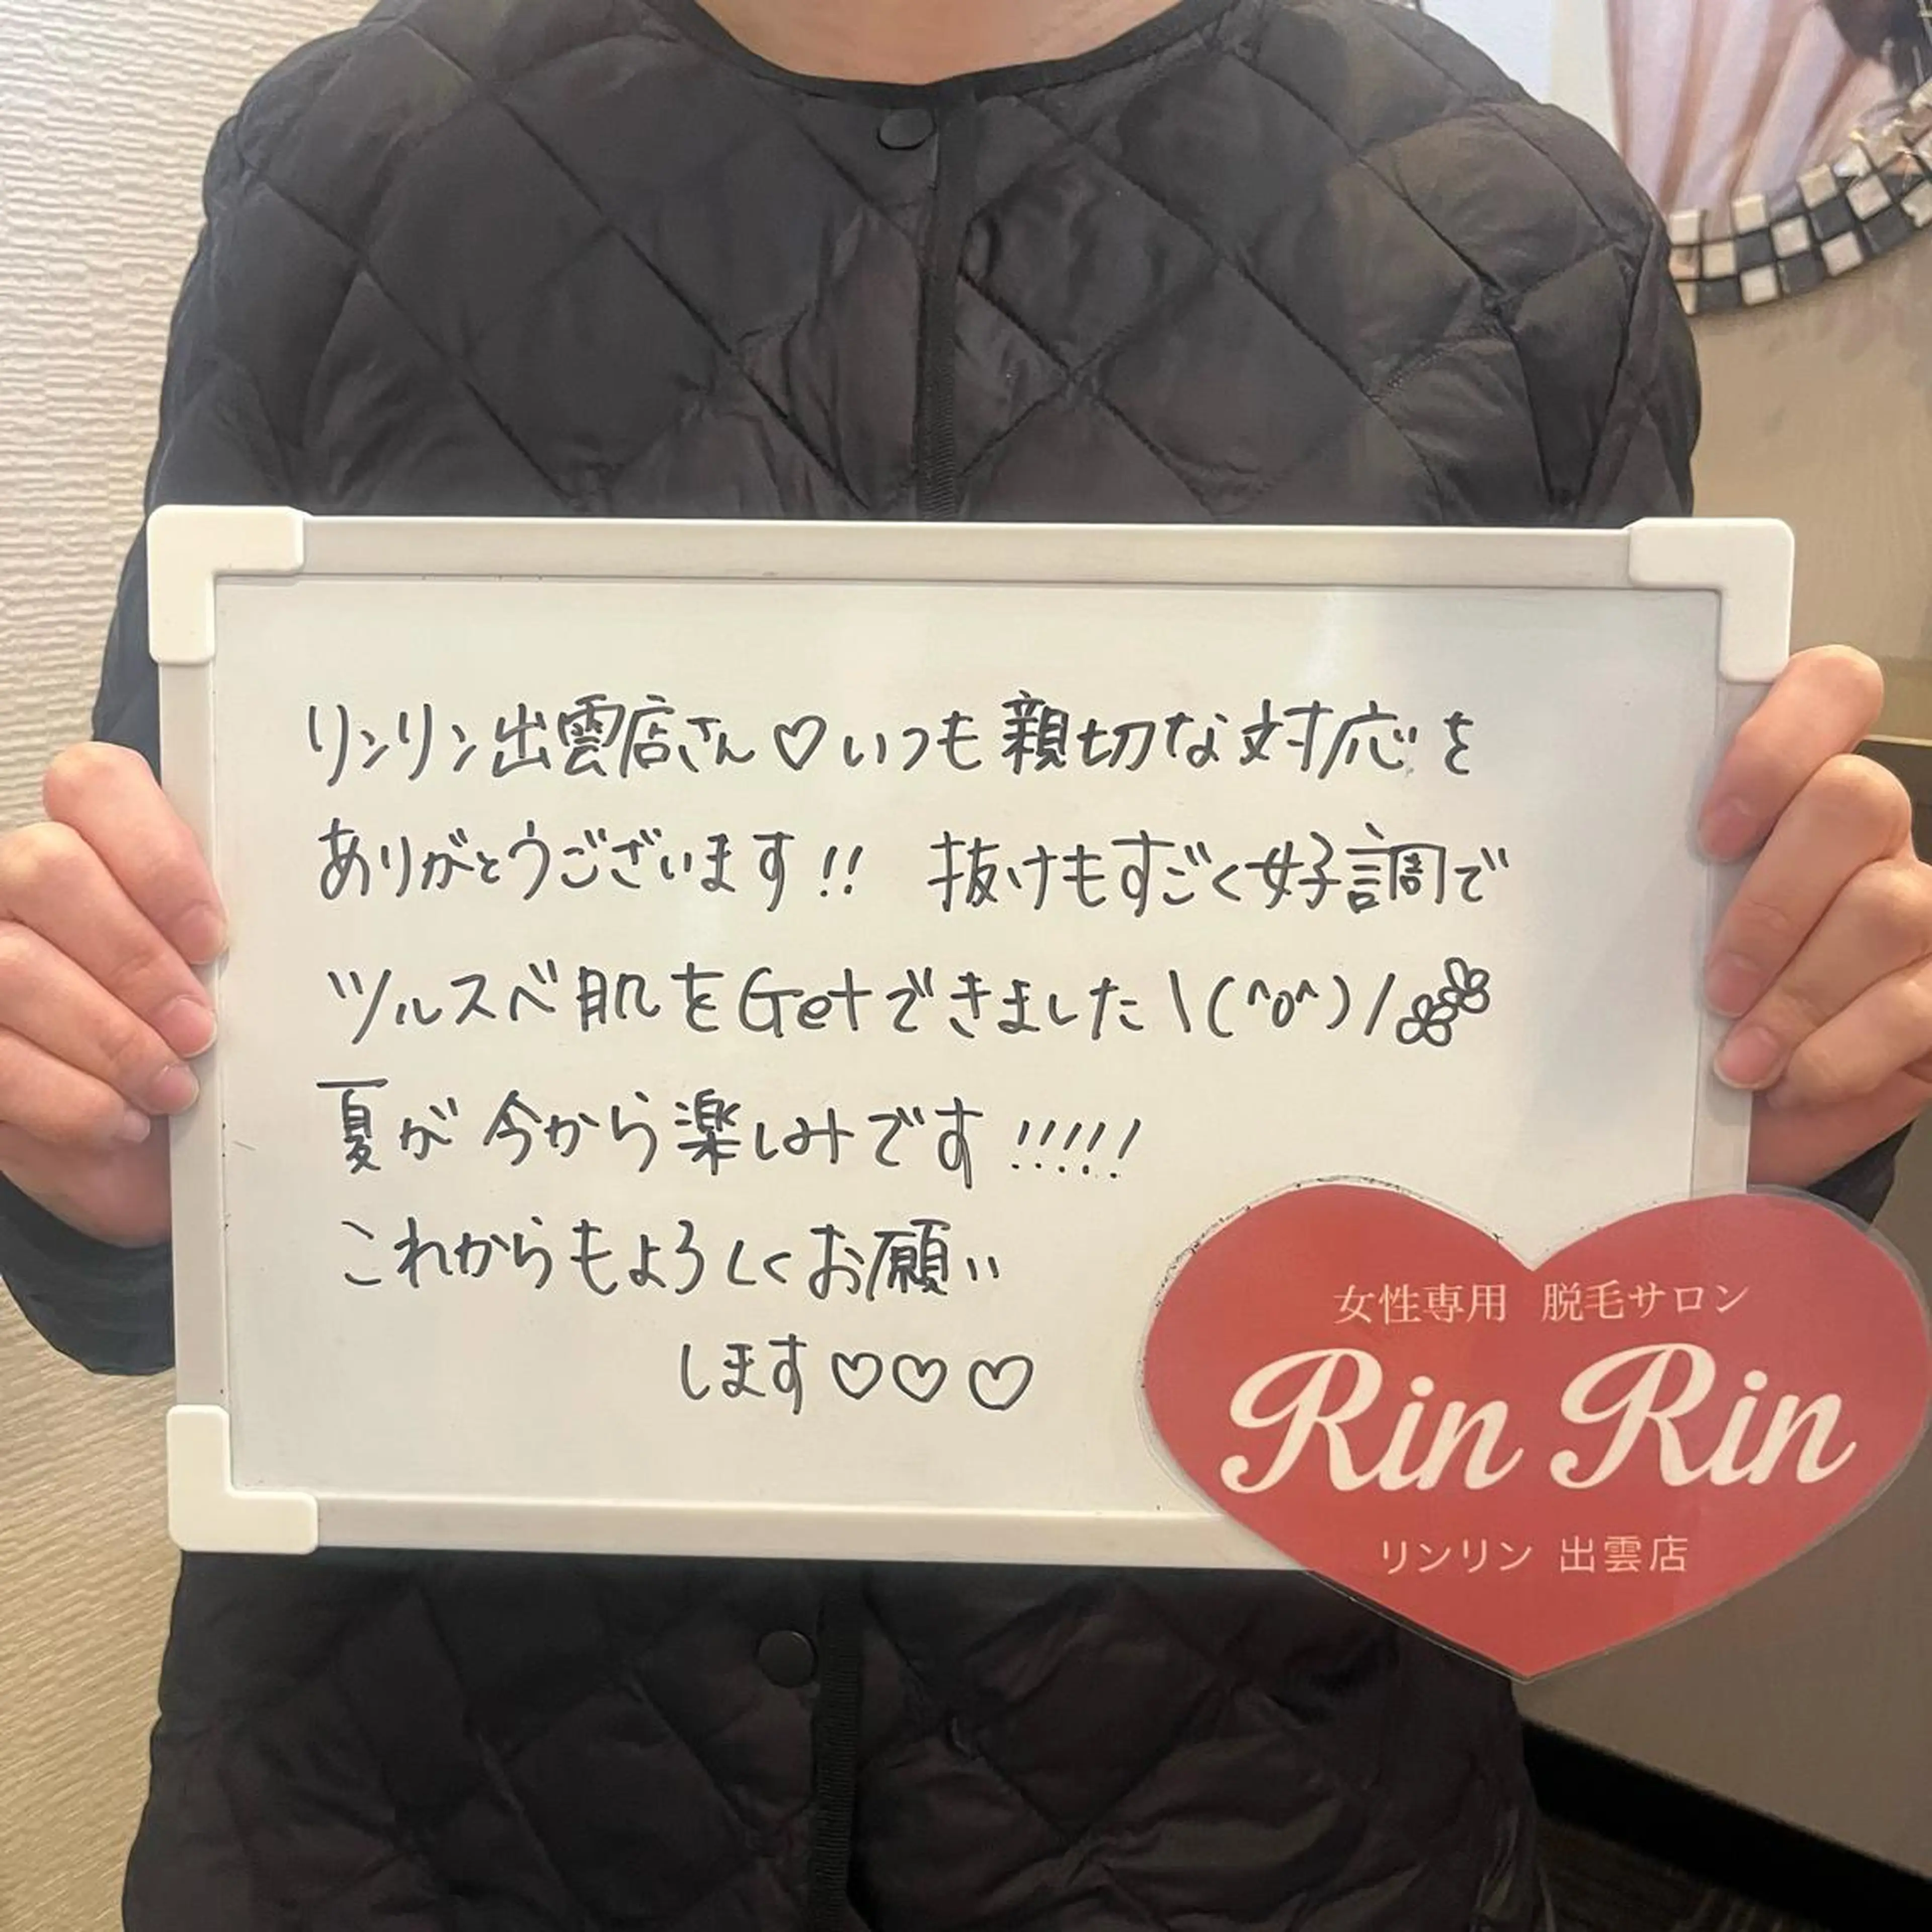 リンリン出雲店さん♡いつも親切な対応を
ありがとうございます!! 抜けもすごく好調で
ツルスベ肌をGetできました\(^o^)/
夏が今から楽しみです!!!!!
これからもよろしくお願い
します♡♡♡
女性専用 脱毛サロン
Rin Rin
リンリン 出雲店